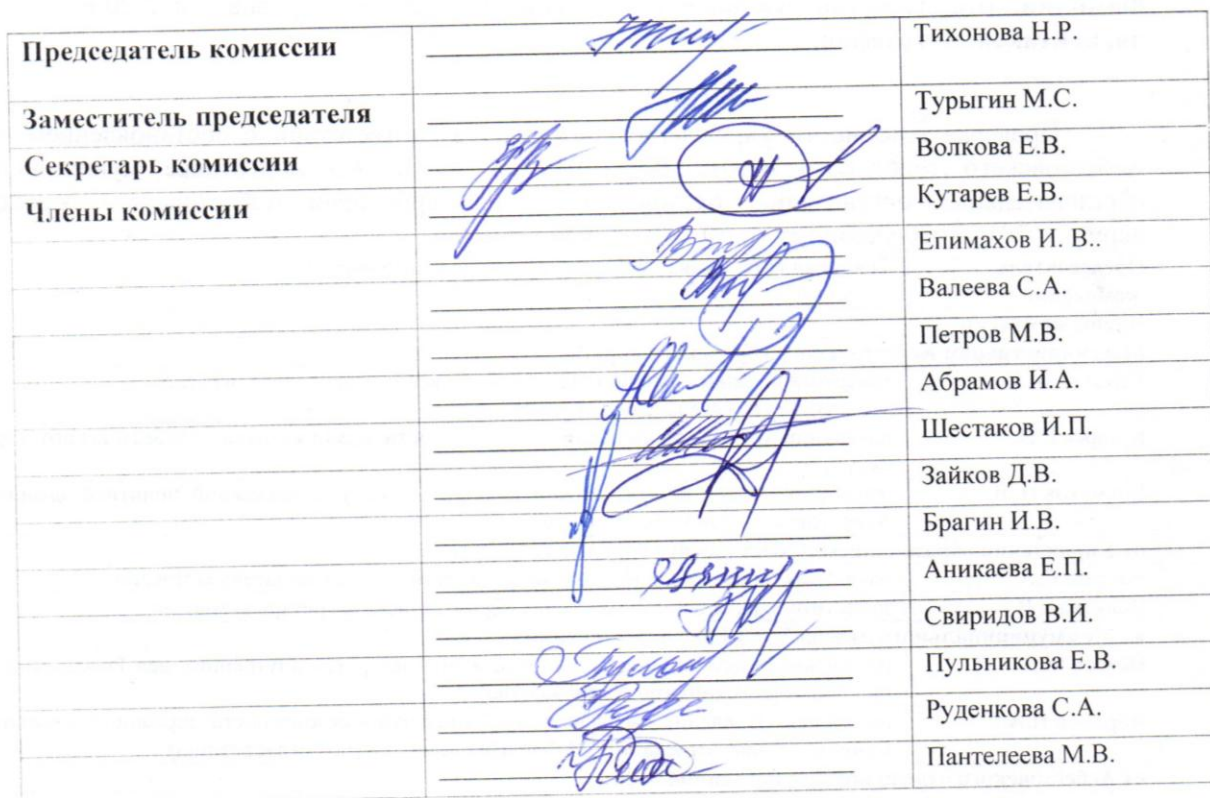 Председатель комиссии Тихонова Н.Р.
Заместитель председателя Турыгин М.С.
Секретарь комиссии Волкова Е.В.
Члены комиссии Кутарев Е.В.
Епимахов И. В..
Валеева С.А.
Петров М.В.
Абрамов И.А.
Шестаков И.П.
Зайков Д.В.
Брагин И.В.
Аникаева Е.П.
Свиридов В.И.
Пульникова Е.В.
Руденкова С.А.
Пантелеева М.В.